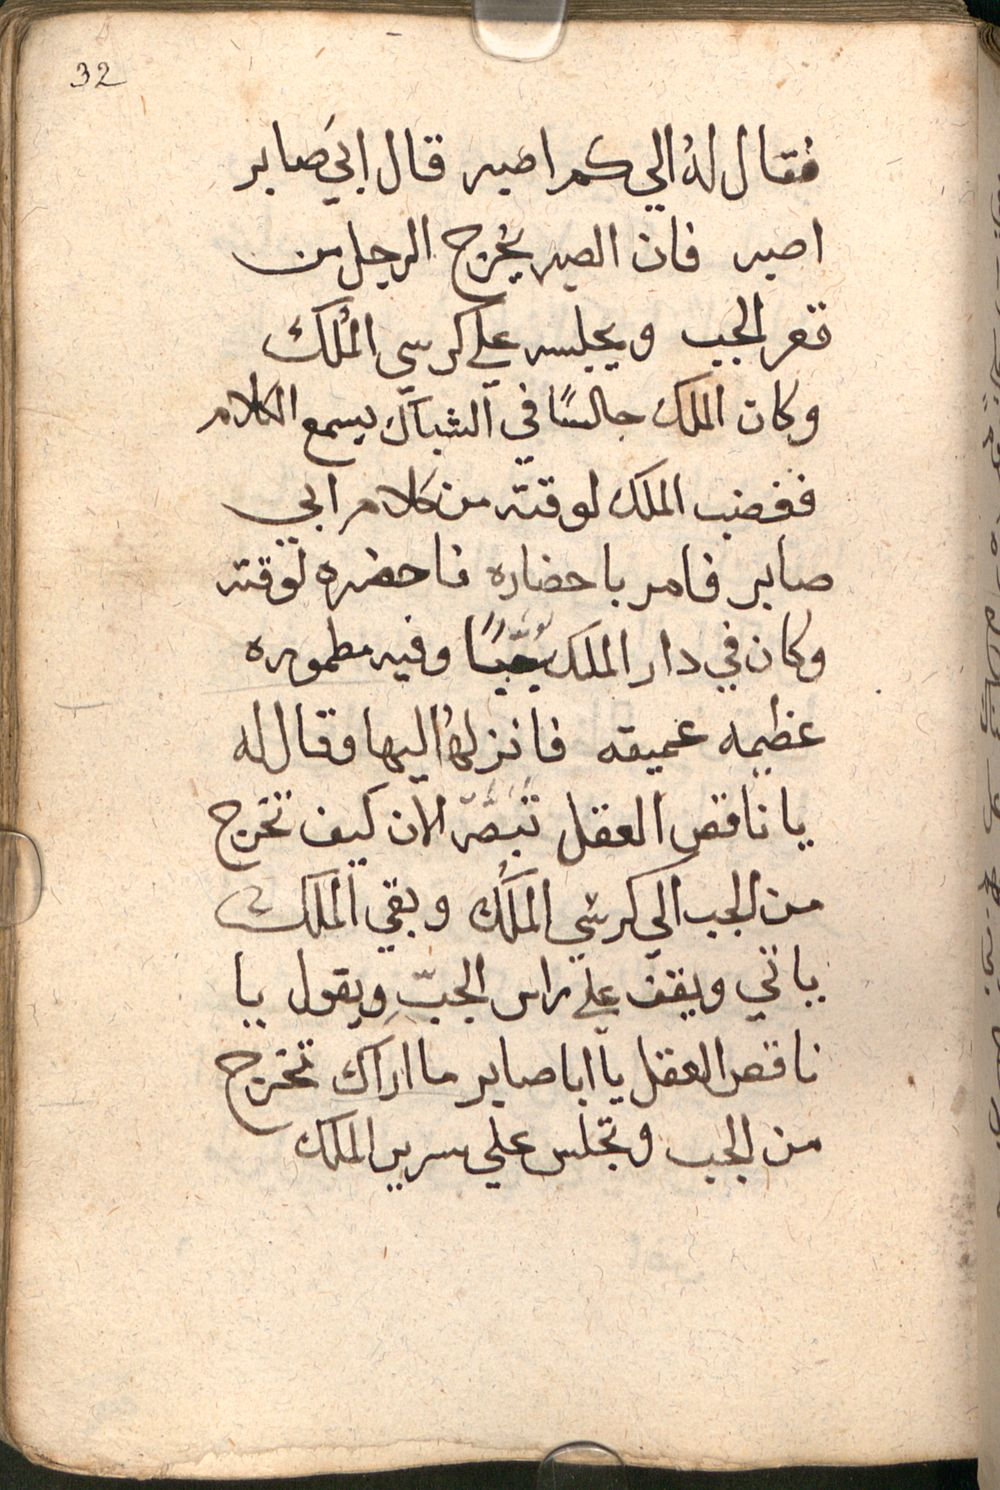 32
فقال له الي كم اصبر قال ابي صابر
اصبر فان الصبر يخرج الرجل من
قعر الجب ويجلسه علي كرسي المُلك
وكان الملك جالسًا في الشباك يسمع الكلام
فغضب الملك لوقته من كلام ابي
صابر فامر باحضاره فاحضره لوقته
وكان في دار الملك جُبًّا وفيه مطموره
عظيمه عميقه فانزلهُ اليها وقال له
يا ناقص العقل تبصّر الان كيف تخرج
من الجب الي كرسي الملك وبقي الملك
ياتي ويقف علي راس الجبّ ويقول يا
ناقص العقل يا ابا صابر ما اراك تخرج
من الجب وتجلس علي سرير الملك